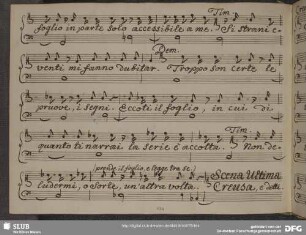 Tim
foglio in parte solo accessibile a me. Si strani e-
Dem.
venti mi fanno dubitar. Troppo son certe le
pruove, i segni. Eccoti il foglio, in cui di
Tim
quanto ti narrai la serie è accolta. Non de-
(prende il foglio, e legge tra se.)
ludermi, o sorte, un'altra volta.
Scena Ultima
Creusa, e detti
SLUB